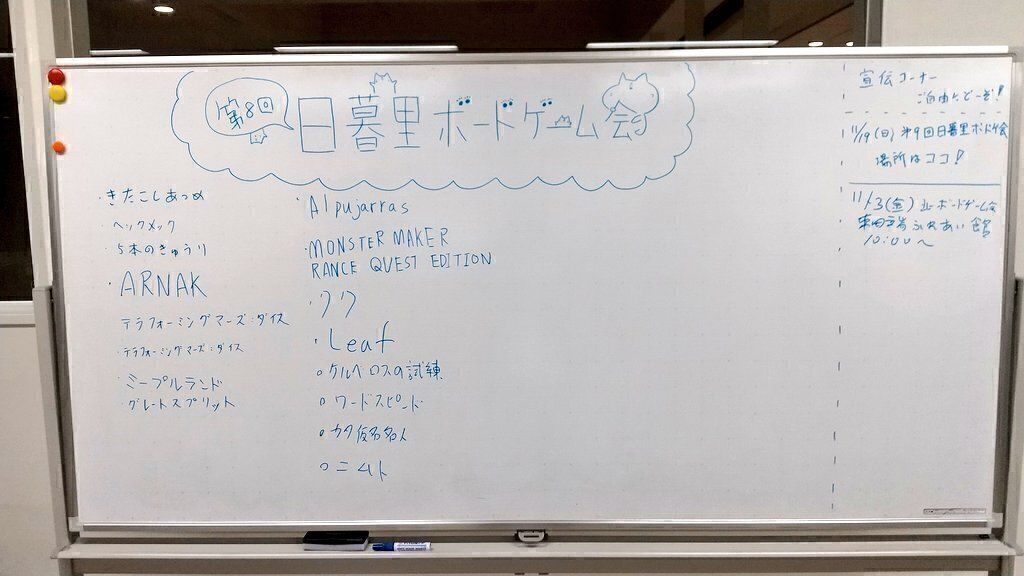 第8回
日暮里ボードゲーム会
・きたこしあつめ
・ヘックメック
・5本のきゅうり
・ARNAK
テラフォーミングマーズ:ダイス
・テラフォーミングマーズ:ダイス
・ミープルランド
・グレートスプリット
・Alpujarras
・MONSTER MAKER
RANCE QUEST EDITION
・クク
・Leaf
○ケルベロスの試練
○ワードスピード
○カタ仮名名人
○ニムト
宣伝コーナー
ご自由にどーぞ!
11/19(日)第9回日暮里ボドゲ会
場所はココ!
ボードゲーム会
ふれあい館
10:00〜